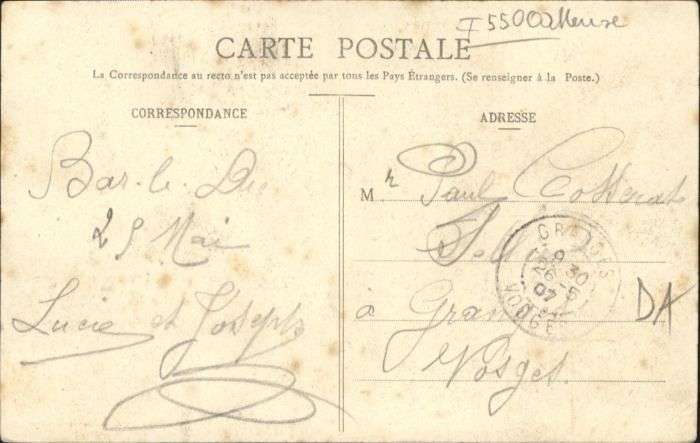 55000 Meuse
CARTE POSTALE
La Correspondance au recto n'est pas acceptée par tous les Pays Étrangers. (Se renseigner à la Poste.)
CORRESPONDANCE
Bar-le-Duc
25 Mai
Lucie et Joseph
ADRESSE
M r Paul
à Granges
Vosges.
GRANGES
9 30
26 - 5
07
VOSGES
DA